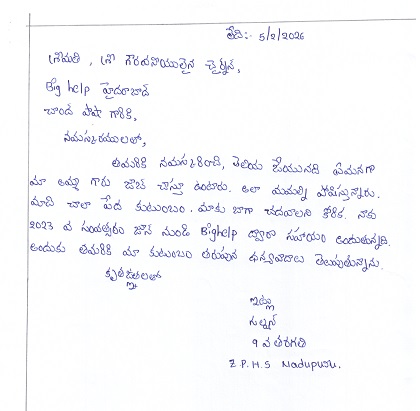 తేది:- 5/2/2026
శ్రీమతి, శ్రీ గౌరవనీయులైన చైర్మన్,
Big help హైదరాబాద్
చాంద్ పాషా గారికి,
నమస్కారములతో,
తమరికి నమస్కరించి, తెలియ చేయునది ఏమనగా
మా అమ్మ గారు జాబ్ చేస్తూ ఉంటారు. అలా మమల్ని పోషిస్తున్నారు.
మాది చాలా పేద కుటుంబం. మాకు బాగా చదవాలని కోరిక. నాకు
2023 వ సంవత్సరం జూన్ నుండి Bighelp ద్వారా సహాయం అందుతున్నది.
అందుకు తమరికి మా కుటుంబం తరుపున ధన్యవాదాలు తెలుపుతున్నాను.
కృతజ్ఞతలతో
ఇట్లు
గుల్షన్
9 వ తరగతి
Z.P.H.S Nadupuru.